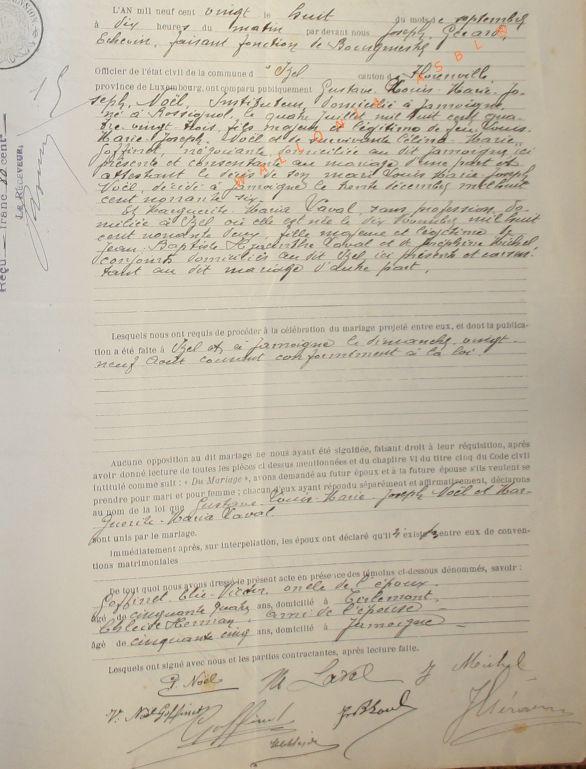 L'AN mil neuf cent vingt le huit du mois de septembre
à dix heures du matin par devant nous Joseph, Gérard,
Echevin, faisant fonction de Bourgmestre
Officier de l'état civil de la commune d'Izel canton de Florenville
province de Luxembourg, ont comparu publiquement Gustave-Louis-Marie-Jo-
seph, Noël, Instituteur, domicilié à Jamoigne,
né à Rossignol, le quatre juillet mil huit cent qua-
tre vingt trois, fils majeur et légitime de feu Louis-
Marie-Joseph Noël et de survivante Célina-Marie
Goffinet négociante domiciliée au dit Jamoigne, ici
présente et consentante au mariage d'une part et
attestant le décès de son mari Louis Marie Joseph
Noël, décédé à Jamoigne le trente décembre mil huit
cent nonante six.
Et Marguerite Maria Laval, sans profession, do-
miciliée à Izel où elle est née le dix mil huit
cent nonante deux, fille majeure et légitime de
Jean-Baptiste Hyacinthe Laval et de Joséphine Michel,
conjoints domiciliés au dit Izel ici présents et consen-
tant au dit mariage d'autre part.
Lesquels nous ont requis de procéder à la célébration du mariage projeté entre eux, et dont la publica-
tion a été faite à Izel et à Jamoigne le dimanche vingt-
neuf Août courant conformément à la loi
Aucune opposition au dit mariage ne nous ayant été signifiée, faisant droit à leur réquisition, après
avoir donné lecture de toutes les pièces ci dessus mentionnées et du chapitre VI du titre cinq du Code civil
intitulé comme suit : « Du Mariage », avons demandé au futur époux et à la future épouse s'ils veulent se
prendre pour mari et pour femme ; chacun d'eux ayant répondu séparément et affirmativement, déclarons
au nom de la loi que Gustave-Louis-Marie-Joseph Noël et Mar-
guerite-Maria Laval
sont unis par le mariage.
Immédiatement après, sur interpellation, les époux ont déclaré qu'il existe entre eux de conven-
tions matrimoniales
De tout quoi nous avons dressé le présent acte en présence des témoins ci-dessous dénommés, savoir :
Goffinet Elie-Victor, oncle de l'époux
âgé de cinquante quatre ans, domicilié à Tirlemont
Herman, ami de l'épouse
âgé de cinquante cinq ans, domicilié à Jamoigne
Lesquels ont signé avec nous et les parties contractantes, après lecture faite.
G. Noël M Laval J Michel
Vve Noël Goffinet Goffinet JBLaval J Gérard
Reçu franc cent
Le Receveur,
WALLONIA ASBL ©